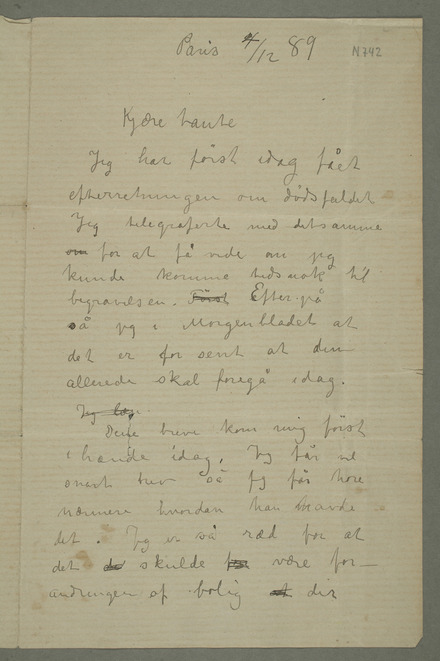 Paris 4/12 89
N 742
Kjære tante
Jeg har först idag fået
efterretningen om dødsfaldet
Jeg telegraferte med detsamme
om for at få vide om jeg
kunde komme tidsnok til
begravelsen. Först Efter på
så jeg i Morgenbladet at
det er for sent at den
allerede skal foregå idag.
Jeg
Dette brev kom mig först
i hænde idag, Jeg får vel
snart brev så jeg får höre
nærmere hvordan han havde
det. Jeg er så ræd for at
det skulde være for-
andringen af bolig der